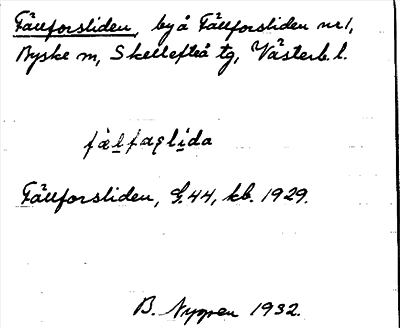 Fällforsliden, by å Fällforsliden nr 1,
Byske sn, Skellefteå tg, Västerb. l.
fälfaşlida
Fällforsliden, G.44, kb. 1929.
B. Nygren 1932.